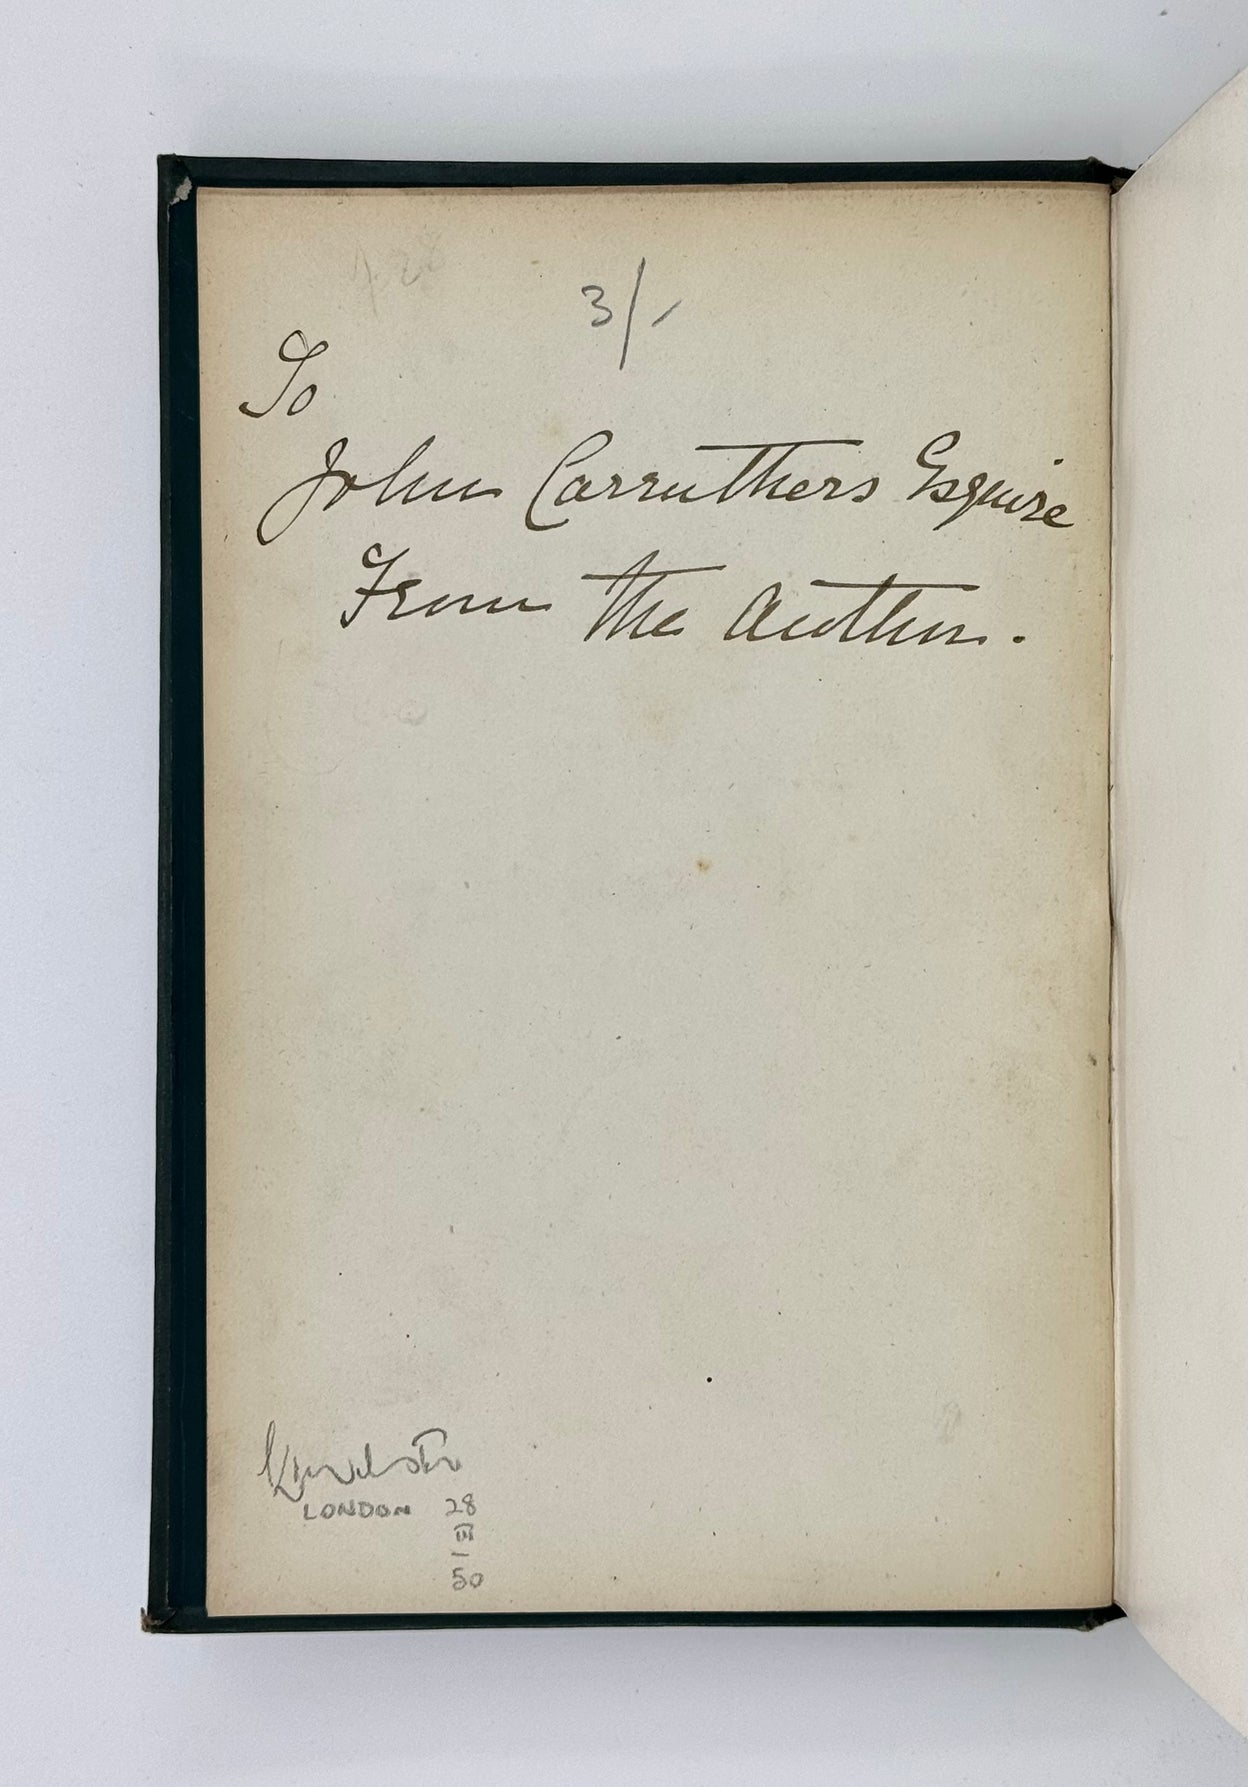 3/-
To
John Carruthers Esquire
From the Author.
LONDON 28
III
50